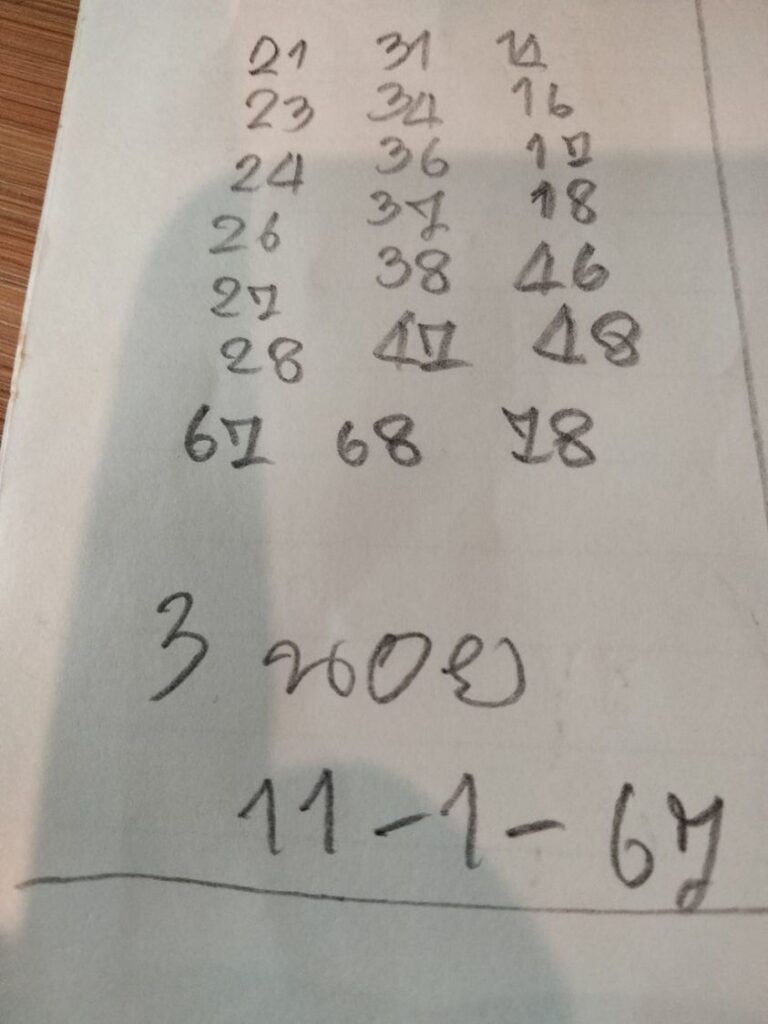 21 31 14
23 34 16
24 36 17
26 37 18
27 38 46
28 47 48
67 68 78
3
11-1-67